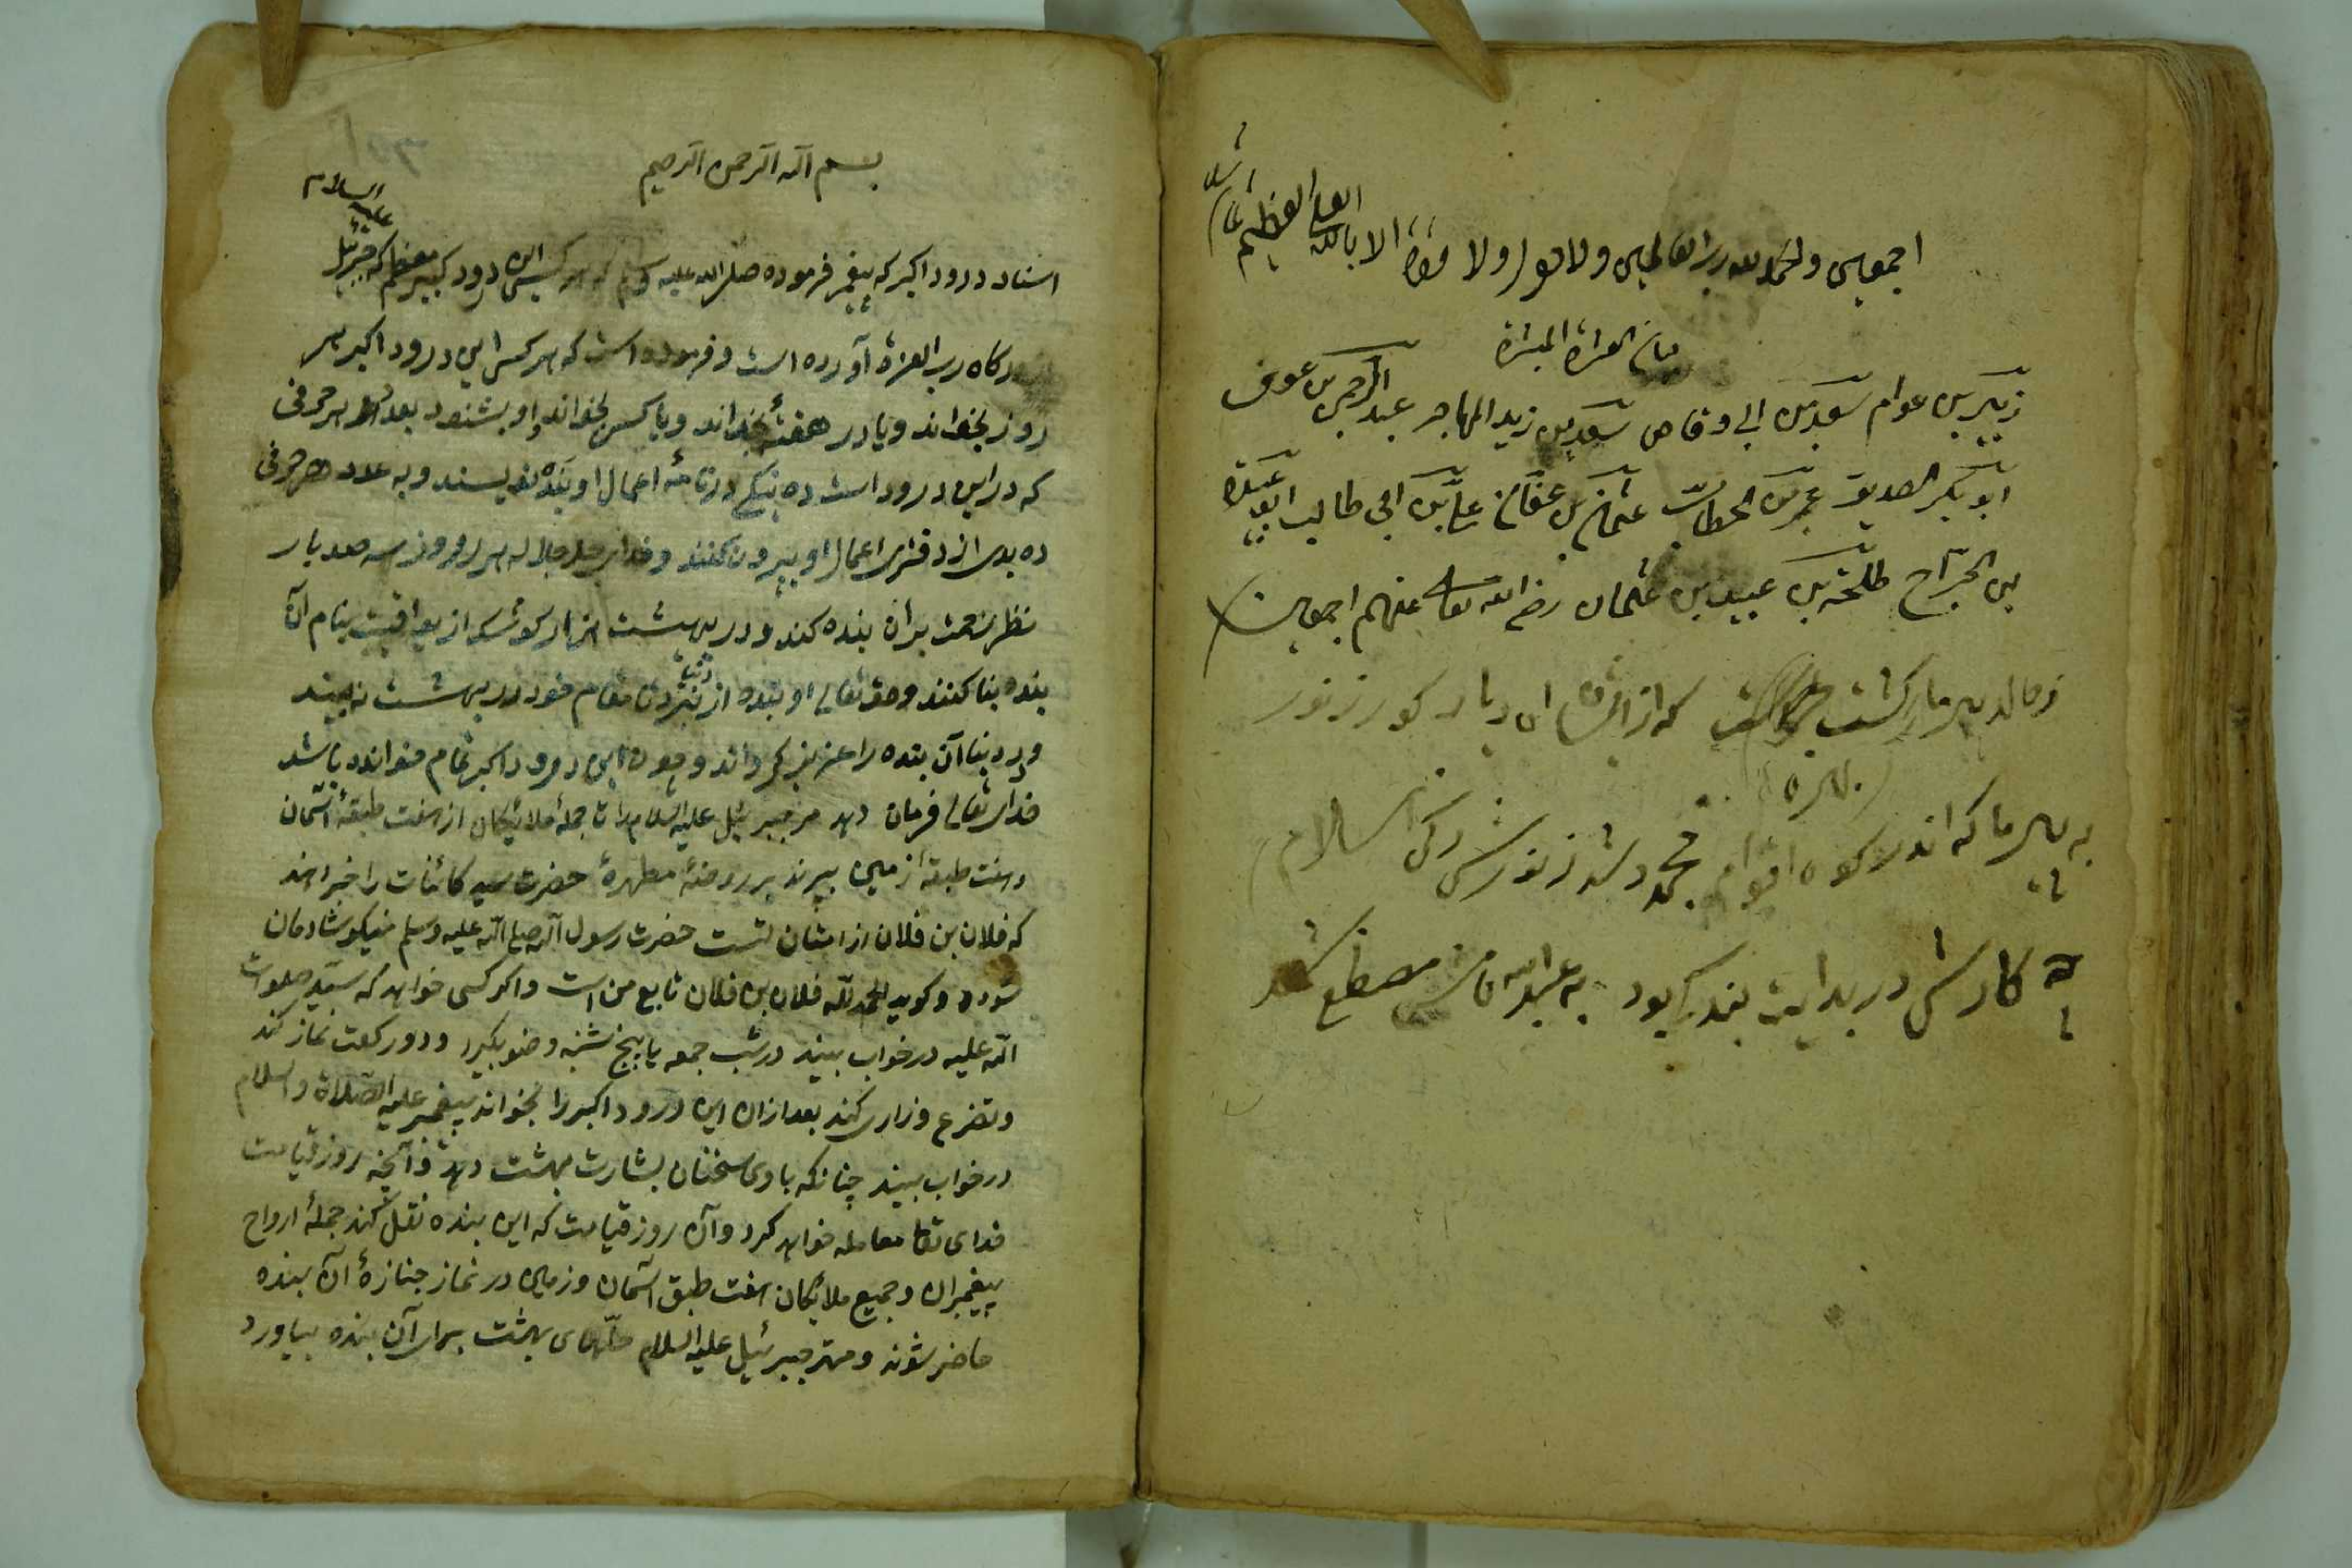 اجمعین والحمد لله رب العالمین ولا حول ولا قوة الا بالله العلی العظیم
بیان العشرة المبشرة
زبیر بن عوام سعد بن ابی وقاص سعد بن زید المهاجر عبد الرحمن بن عوف
ابو بکر الصدیق عمر بن الخطاب عثمان بن عفان علی بن ابی طالب ابو عبیده
بن الجراح طلحة بن عبید بن عثمان رضی الله تعالی عنهم اجمعین
که از ای دیار
به پیر ما که اندر کوه شد ز نورش اسلام
که کارش در بدایت بود به عبد الله
بسم الله الرحمن الرحیم
اسناد درود اکبر که پیغمبر فرموده صلی الله علیه وسلم که هر کسی این درود کبیر معظم که جبرئیل علیه السلام
از درکاه رب العزة آورده است و فرموده است که هر کس این درود اکبر هر
روز بخواند و یا در هفتهٔ بخواند و یا کسی بخواند او بشنود بعدد هر حرفی
که در این درود است ده نیکی در نامهٔ اعمال او بنده نویسند و به عدد هر حرفی
ده بدی از دفتر اعمال او بیرون کنند و خدای جل جلاله هر روز سه صد بار
نظر رحمت بر آن بنده کند و در بهشت هزار کوشک از یواقیت بنام آن
بنده بنا کنند و حق تعالی او بنده از دنیا نبرد تا مقام خود در بهشت نه بیند
و در دنیا آن بنده را عزیز کرداند و چون این درود اکبر تمام خوانده باشد
خدای تعالی فرمان دهد مر جبرئیل علیه السلام را تا جملهٔ ملائکان از هفت طبقهٔ آسمان
و هفت طبقهٔ زمین ببرند بر روضهٔ مطهرهٔ حضرت سید کائنات را خبر دهند
که فلان بن فلان از امتان تست حضرت رسول الله صلی الله علیه وسلم نیکو شادمان
شود و کوید الحمد لله فلان بن فلان تابع من است و اکر کسی خواهد که سید صلوات
الله علیه در خواب بیند در شب جمعه یا پنج شنبه وضو بکیرد و دو رکعت نماز کند
و تضرع و زاری کند بعد ازان این درود اکبر را بخواند پیغمبر علیه الصلاة والسلام
در خواب بیند چنانکه با وی سخنان بشارت بهشت دهد و آنچه روز قیامت
خدای تعا معامله خواهد کرد و آن روز قیامت که این بنده نقل کند جملهٔ ارواح
پیغمبران و جمیع ملائکان هفت طبق آسمان و زمین در نماز جنازهٔ آن بنده
حاضر شوند و مهتر جبرئیل علیه السلام حلّهای بهشت برای آن بنده بیاورد